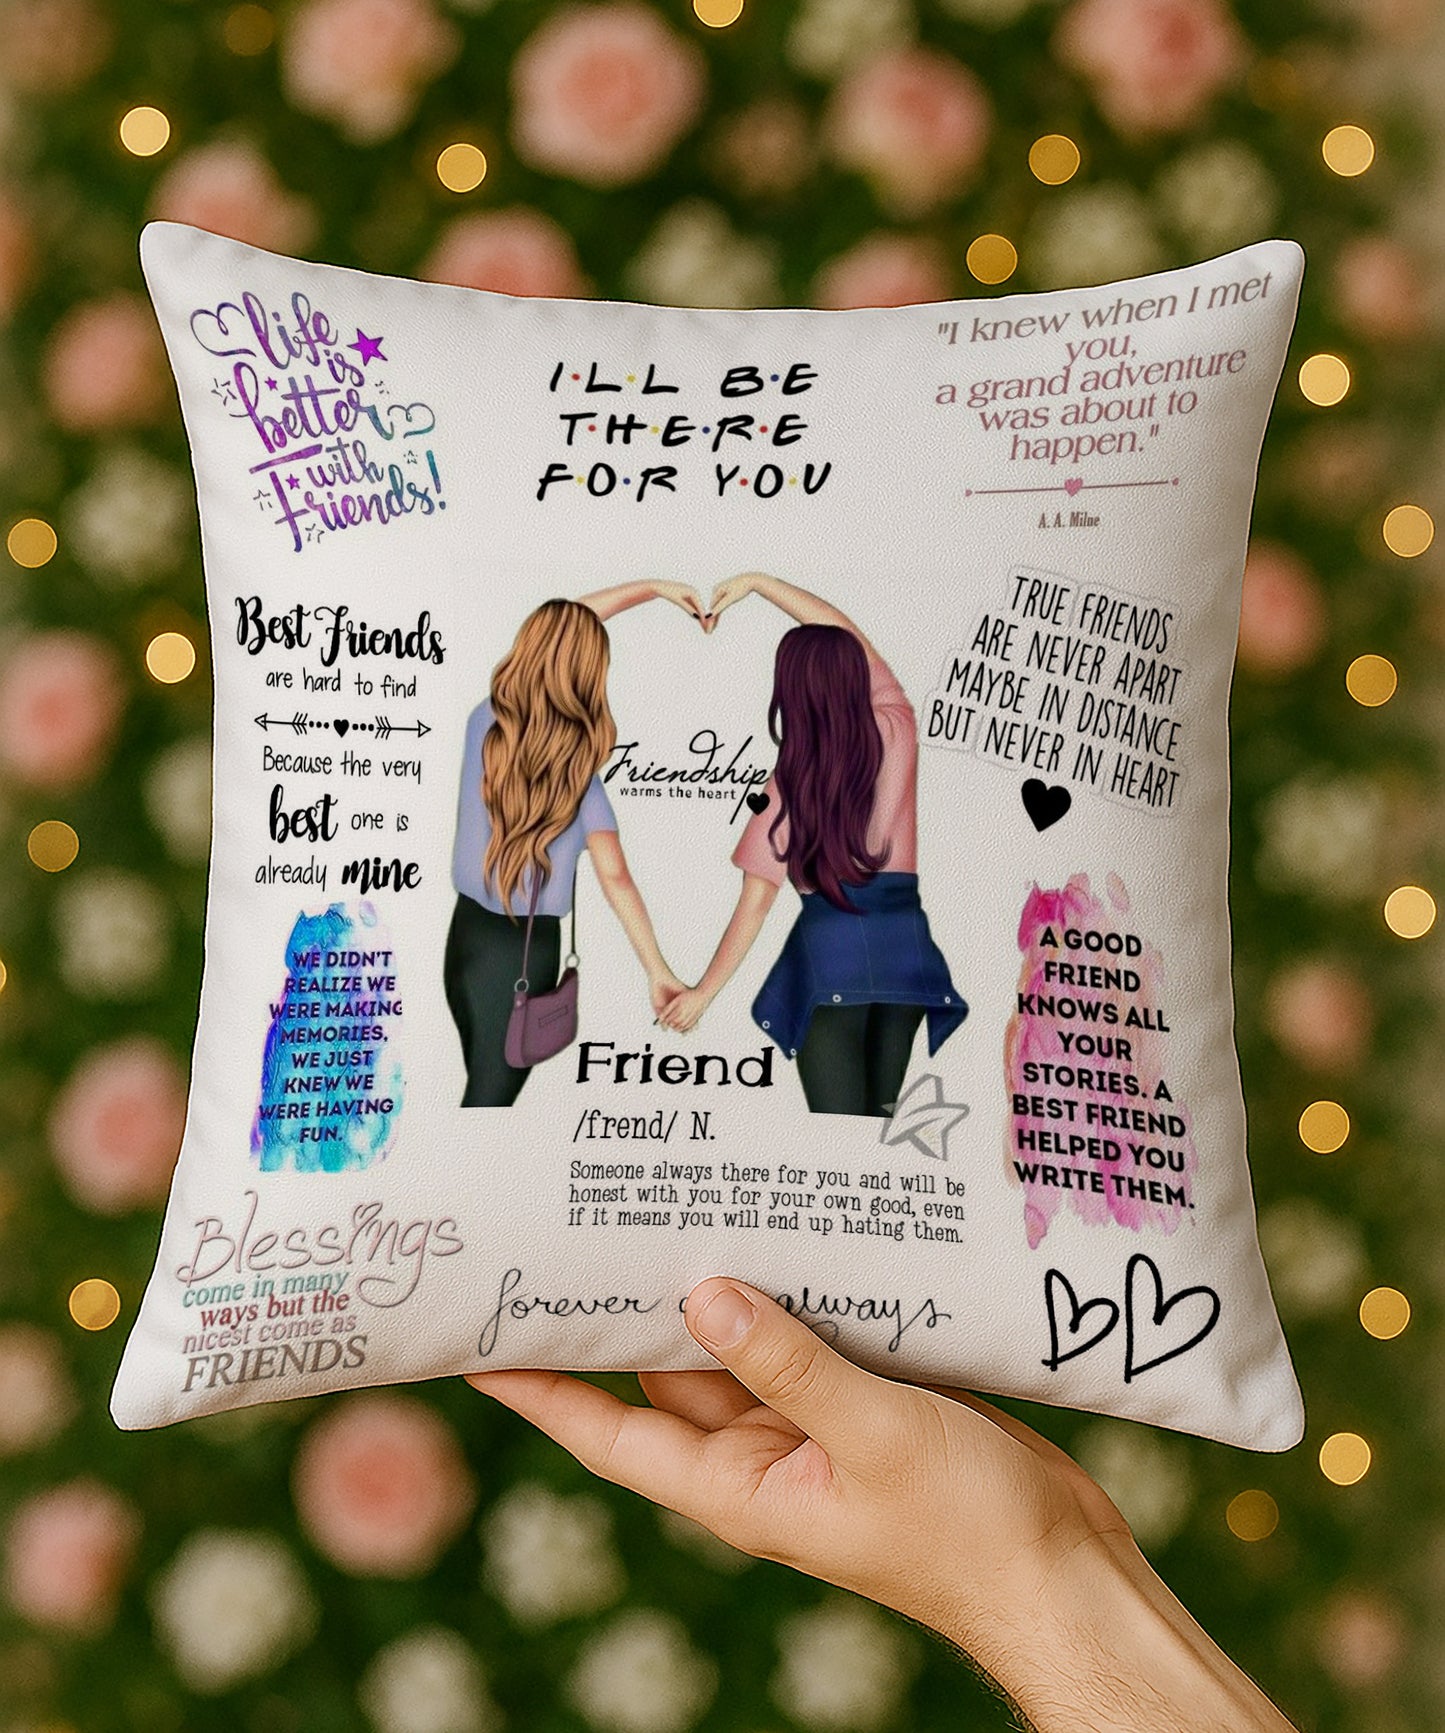 life
is
better
with
friends!
I·L·L B·E
T·H·E·R·E
F·O·R Y·O·U
"I knew when I met
you,
a grand adventure
was about to
happen."
A. A. Milne
Best Friends
are hard to find
Because the very
best one is
already mine
Friendship
warms the heart
TRUE FRIENDS
ARE NEVER APART
MAYBE IN DISTANCE
BUT NEVER IN HEART
WE DIDN'T
REALIZE WE
WERE MAKING
MEMORIES,
WE JUST
KNEW WE
WERE HAVING
FUN.
A GOOD
FRIEND
KNOWS ALL
YOUR
STORIES. A
BEST FRIEND
HELPED YOU
WRITE THEM.
Friend
/frend/ N.
Someone always there for you and will be
honest with you for your own good, even
if it means you will end up hating them.
Blessings
come in many
ways but the
nicest come as
FRIENDS
forever always